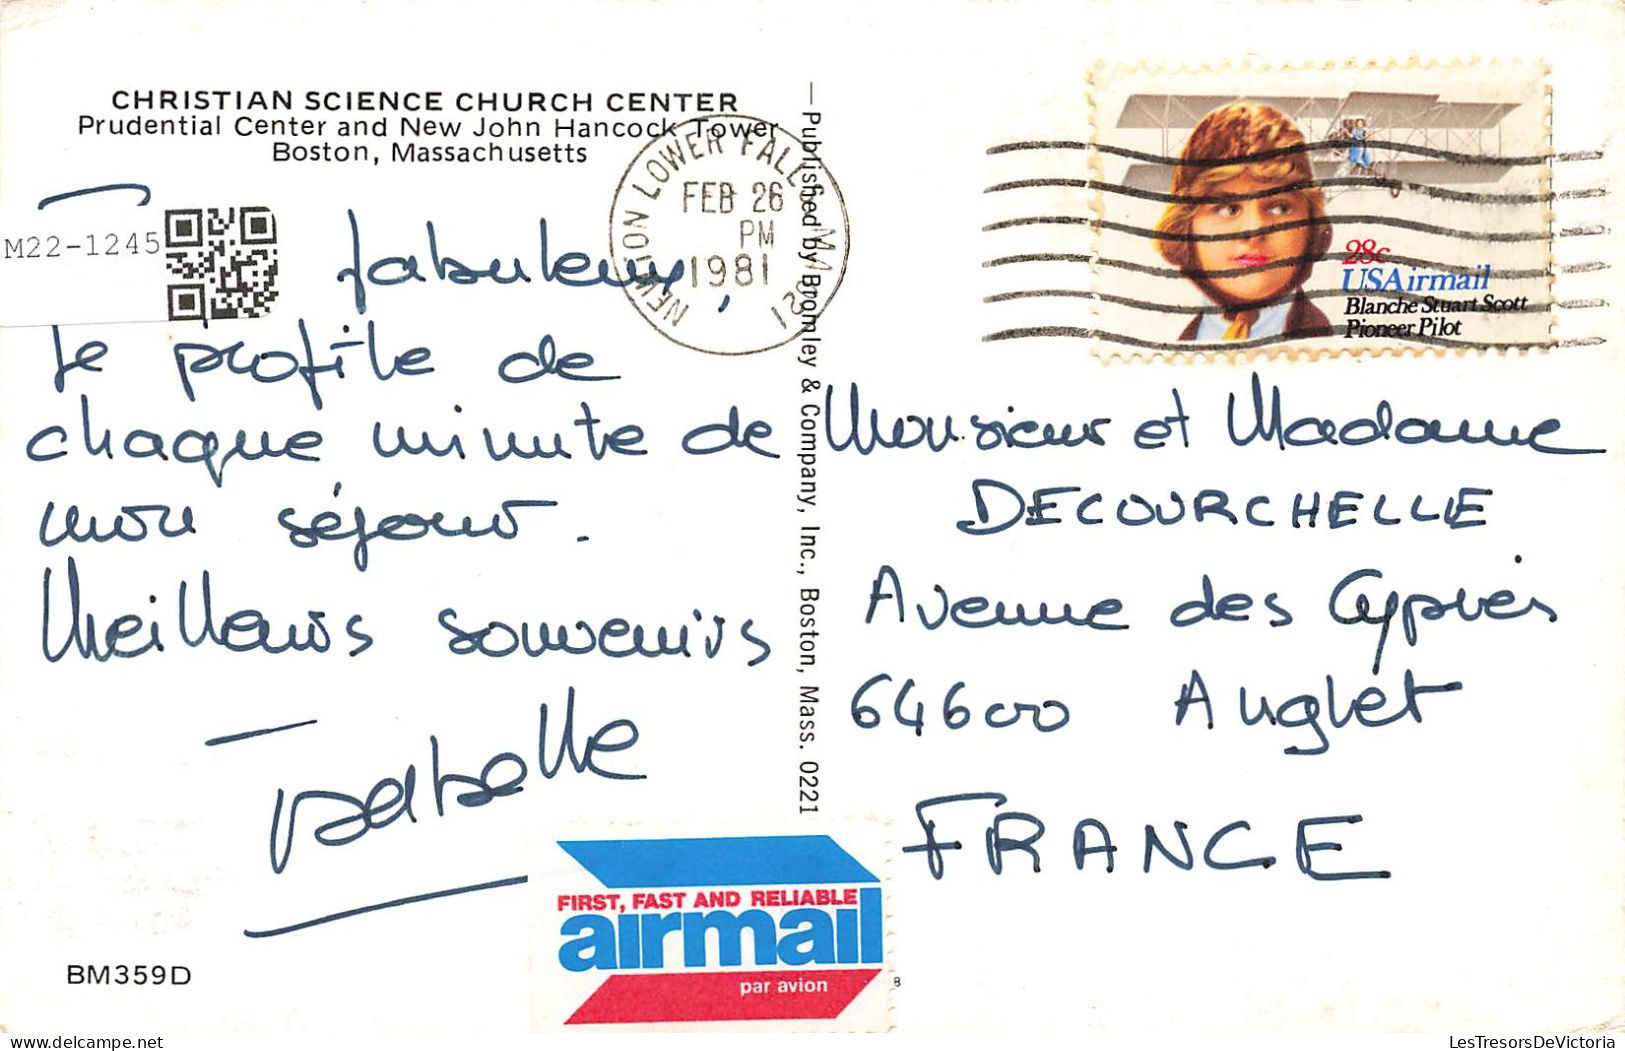 CHRISTIAN SCIENCE CHURCH CENTER
Prudential Center and New John Hancock Tower
Boston, Massachusetts
M22-1245
fabuleux,
Je profite de
chaque minute de
mon séjour.
Meilleurs souvenirs
Isabelle
BM359D
NEWTON LOWER FALLS MA
FEB 26
PM
1981
021
—Published by Bromley & Company, Inc., Boston, Mass. 0221
28c
USAirmail
Blanche Stuart Scott
Pioneer Pilot
Monsieur et Madame
DECOURCHELLE
Avenue des Cyprès
64600 Anglet
FRANCE
FIRST, FAST AND RELIABLE
airmail
par avion
8
delcampe.net
LesTresorsDeVictoria